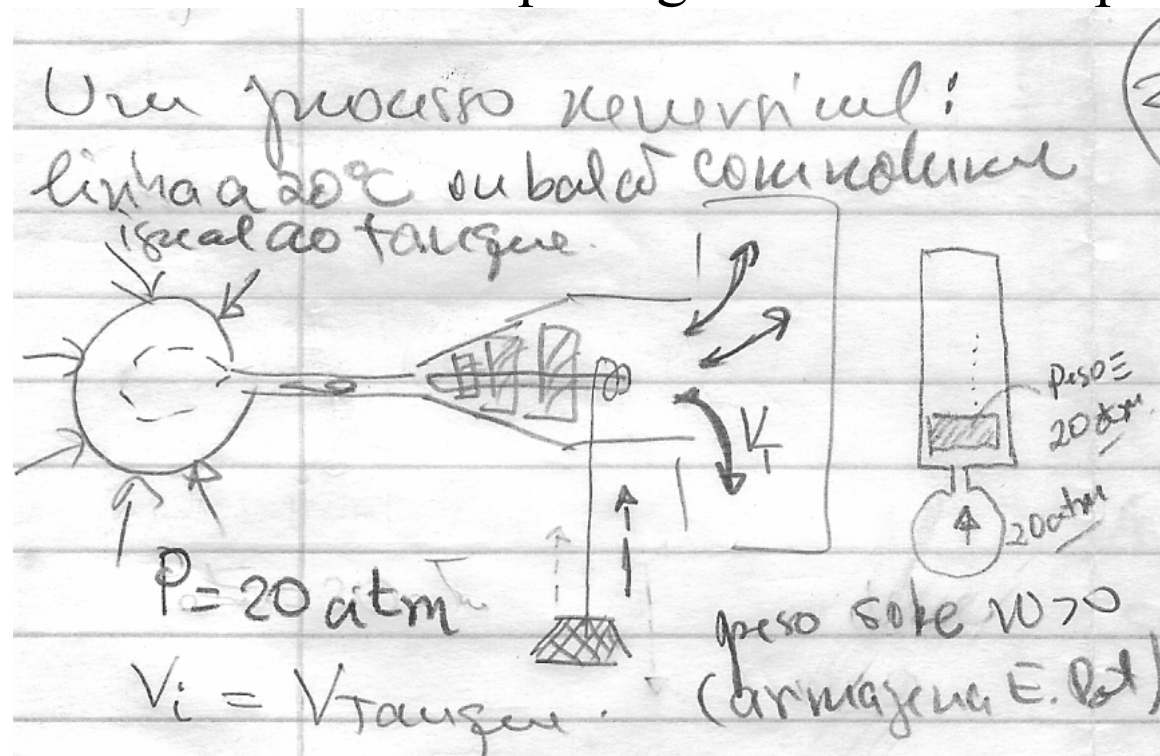 Um processo reversível:
linha a 20°C ou balão com volume
igual ao tanque.
V
peso =
20 atm
20 atm
P = 20 atm
Vi = VTanque.
peso sobe W>0
(armazena E. Pot)